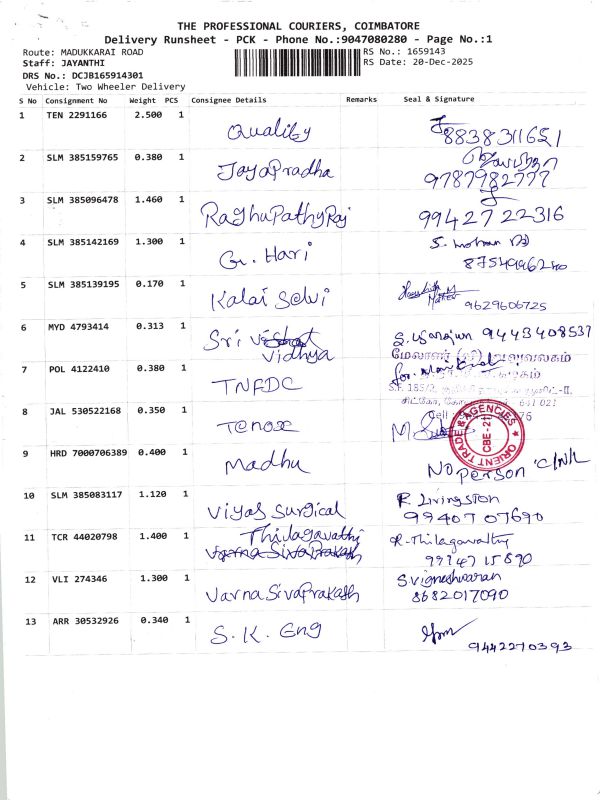 THE PROFESSIONAL COURIERS, COIMBATORE
Delivery Runsheet - PCK - Phone No.:9047080280 - Page No.:1
Route: MADUKKARAI ROAD RS No.: 1659143
Staff: JAYANTHI RS Date: 20-Dec-2025
DRS No.: DCJB165914301
Vehicle: Two Wheeler Delivery
S No Consignment No Weight PCS Consignee Details Remarks Seal & Signature
1 TEN 2291166 2.500 1 Quality 8838311651
2 SLM 385159765 0.380 1 JayaPradha 9787982777
3 SLM 385096478 1.460 1 RaghuPathyRaj 9942722316
4 SLM 385142169 1.300 1 G. Hari S. Mohan
5 SLM 385139195 0.170 1 Kalai Selvi 9629606725
6 MYD 4793414 0.313 1 Sri Vidhya 9443408537
7 POL 4122410 0.380 1 TNFDC
8 JAL 530522168 0.350 1 Tenox M
ORIENT TRADE & AGENCIES CBE-21
9 HRD 7000706389 0.400 1 Madhu No Person
10 SLM 385083117 1.120 1 Viyas Surgical R. Livingston
9940707690
11 TCR 44020798 1.400 1 Thilagavathi R. Thilagavathy
Varna SivaPrakash
12 VLI 274346 1.300 1 Varna SivaPrakash S vigneshwaran
8682017090
13 ARR 30532926 0.340 1 S. K. Eng
9442270393